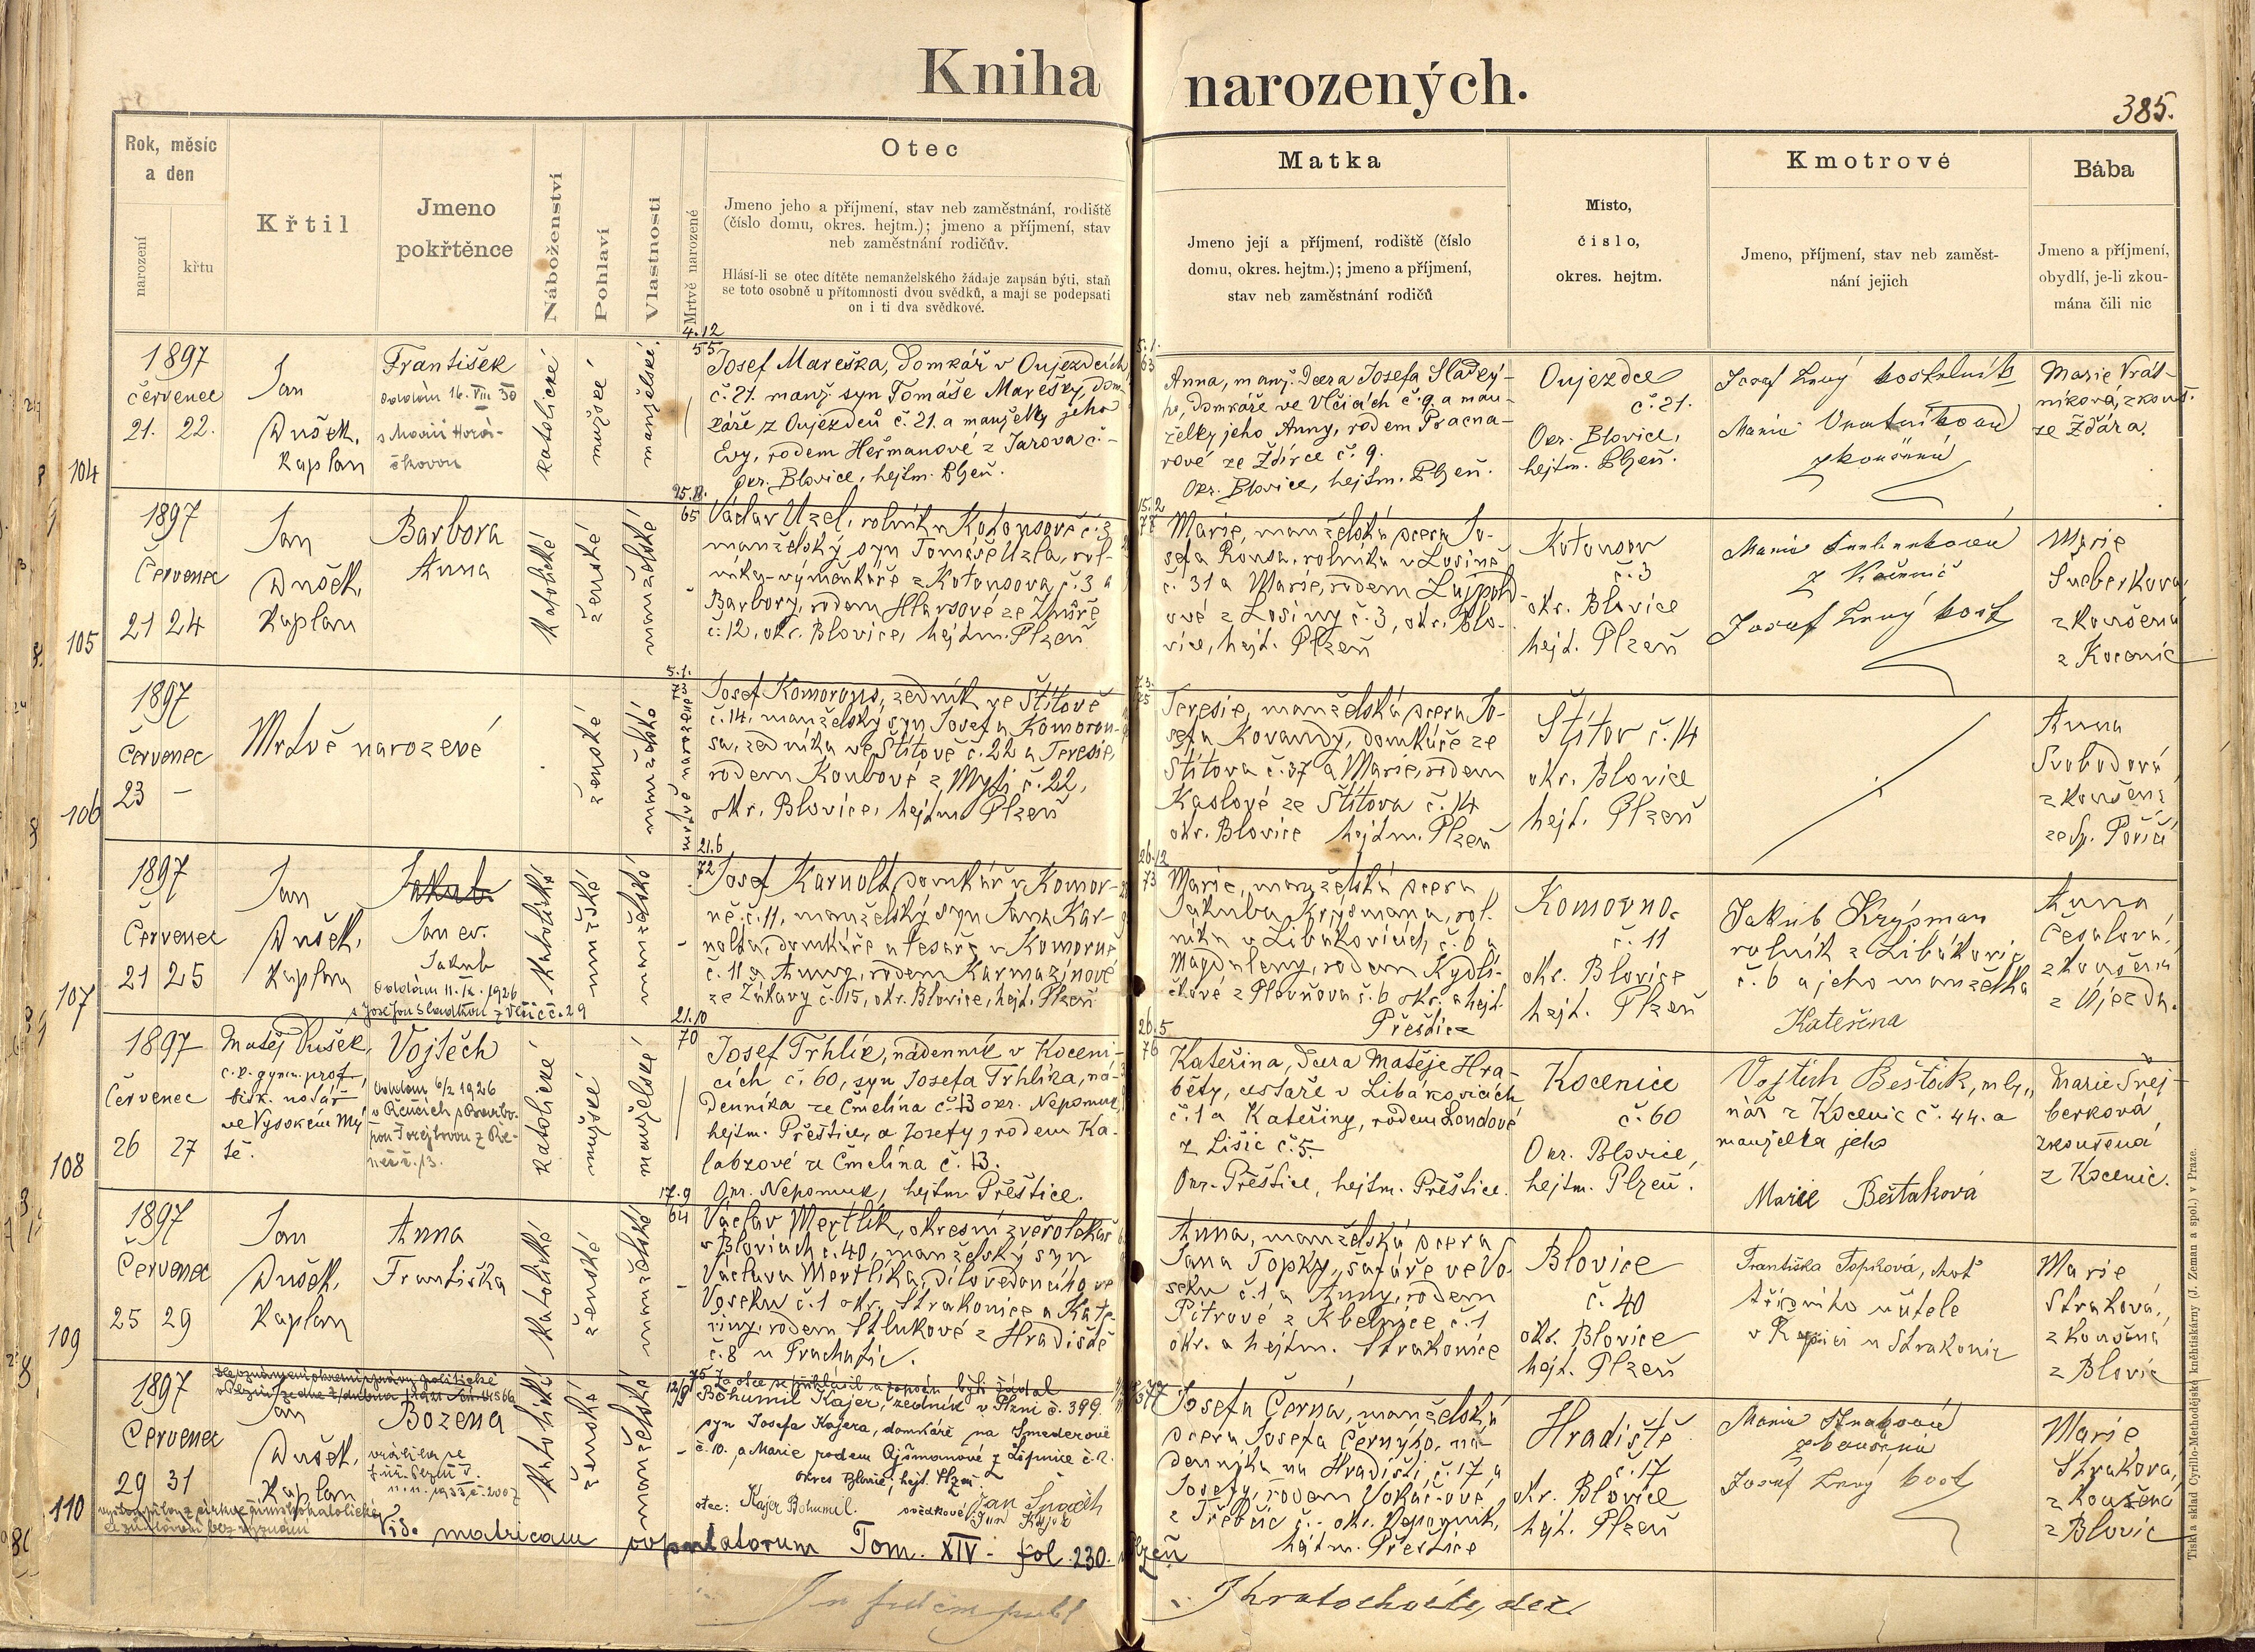 Kniha narozených.
385.
Rok, měsíc
a den
narození
křtu
Křtil
Jmeno
pokřtěnce
Náboženství
Pohlaví
Vlastnosti
Mrtvě narozené
Otec
Jmeno jeho a příjmení, stav neb zaměstnání, rodiště
(číslo domu, okres. hejtm.); jmeno a příjmení, stav
neb zaměstnání rodičův.
Hlásí-li se otec dítěte nemanželského žádaje zapsán býti, staň
se toto osobně u přítomnosti dvou svědků, a mají se podepsati
on i ti dva svědkové.
Matka
Jmeno její a příjmení, rodiště (číslo
domu, okres. hejtm.); jmeno a příjmení,
stav neb zaměstnání rodičů
Místo,
číslo,
okres. hejtm.
Kmotrové
Jmeno, příjmení, stav neb zaměst-
nání jejich
Bába
Jmeno a příjmení,
obydlí, je-li zkou-
mána čili nic
104
1897
červenec
21. 22.
Jan
Dušek,
Kaplan
František
oddán 16. VIII 30
katolické
mužské
manželské.
4.12
55
Josef Mareška, Domkář v Oujezdcích
č. 21. manž. syn Tomáše Marešky, dom-
káře z Oujezdců č. 21. a manželky jeho
Evy, rodem Heřmanové z Jarova č. -
okr. Blovice, hejtm. Plzeň.
5.1.
63
Anna, manž. Dcera Josefa Sladký-
ho, Domkáře ve Vlčicích č. 9. a man-
želky jeho Anny, rodem Pracna-
rové ze Ždírce č. 9.
Okr. Blovice, hejtm. Plzeň.
Oujezdce
č. 21.
Okr. Blovice,
hejtm. Plzeň.
Josef kostelník
zkoušená
Marie Vrát-
níková, zkouš.
ze Žďára.
105
1897
Červenec
21 24
Jan
Dušek,
Kaplan
Barbora
Anna
Katolické
ženské
manželské
65
Václav Uzel, rolník v Kotousově č. 3
manželský syn Tomáše Uzla, rol-
níka-výměnkáře z Kotousova, č. 3 a
Barbory, rodem Hlavsové ze
č. 12, okr. Blovice, hejtm. Plzeň
15.2
77
Marie, manželská dcera Jo-
sefa rolníka v Losině
č. 31 a Marie, rodem
ové z Losiny č. 3, okr. Blo-
vice, hejt. Plzeň
Kotousov
č. 3
okr. Blovice
hejt. Plzeň
Marie
zkoušená
z Kocenic
106
1897
Červenec
23 -
Mrtvě narozené
ženské
manželské
mrtvě narozené
5.1.
73
Josef Komorous, zedník ve Štítově
č. 14, manželský syn Josefa Komorou-
sa, zedníka ve Štítově č. 22 a Teresie,
rodem Koubové z Mýti č. 22,
okr. Blovice, hejtm. Plzeň
75
Teresie, manželská dcera Jo-
sefa Kovandy, domkáře ze
Štítova č. 37 a Marie, rodem
Kaslové ze Štítova č. 14
okr. Blovice hejtm. Plzeň
Štítov č. 14
okr. Blovice
hejt. Plzeň
Anna
Svobodová
zkoušená
ze Sp. Poříčí
107
1897
Červenec
21 25
Jan
Dušek,
Kaplan
Jakub
Jan ev.
Jakub
oddán 11. IX. 1926
Katolické
mužské
manželské
21.6
72
Josef Karnolt, domkář v Komor-
ně č. 11, manželský syn Jana Kar-
nolta, domkáře a tesaře v Komorně
č. 11 a Anny, rodem Karmazínové
ze Žákavy č. 15, okr. Blovice, hejt. Plzeň
26.12
73
Marie, manželská dcera
Jakuba Krýsmana, rol-
níka v Libákovicích, č. 6 a
Magdaleny, rodem Kydlí-
čkové z Plevňova č. 6 okr. a hejt.
Přeštice
Komorno.
č. 11
okr. Blovice
hejt. Plzeň
Jakub Krýsman
rolník z Libákovic
č. 6 a jeho manželka
Kateřina
Anna
Česalová,
zkoušená
z Újezda.
108
1897
Červenec
26 27
Matěj Dušek,
c. k. gymn. prof.,
bisk. notář
ve Vysokém Mý-
tě.
Vojtěch
oddán 6/2 1926
katolické
mužské
manželské
21.10
70
Josef Trhlík, nádenník v Koceni-
cích č. 60, syn Josefa Trhlíka, ná-
denníka ze Čmelína č. 13 okr. Nepomuk,
hejtm. Přeštice, a Josefy, rodem Ka-
labzové ze Čmelína č. 13.
Okr. Nepomuk, hejtm. Přeštice.
26.5
76
Kateřina, Dcera Matěje Hra-
běty, cestaře v Libákovicích
č. 1 a Kateřiny, rodem Loudové
z Lišic č. 5.
Okr. Přeštice, hejtm. Přeštice.
Kocenice
č. 60
Okr. Blovice,
hejtm. Plzeň.
Vojtěch Bešťák, mly-
nář z Kocenic č. 44. a
manželka jeho
Marie Bešťáková
Marie Švej-
berková
zkoušená
z Kocenic.
109
1897
Červenec
25 29
Jan
Dušek,
Kaplan
Anna
Františka
Katolické
ženské
manželské
17.9
64
Václav Mertlík, okresní zvěrolékař
v Blovicích č. 40, manželský syn
Václava Mertlíka, dílovedoucího ve
Voseku č. 1 okr. Strakonice a Kate-
řiny, rodem Stlukové z Hradiště
č. 8 u Prachatic.
Anna, manželská dcera
Jana Topky, šafáře ve Vo-
seku č. 1 a Anny, rodem
Pitrové z Kbelnice č. 1
okr. a hejtm. Strakonice
Blovice
č. 40
okr. Blovice
hejt. Plzeň
Františka Topková, choť
řídícího učitele
u Strakonic
Marie
Straková,
zkoušená
z Blovic
110
1897
Červenec
29 31
Jan
Dušek,
Kaplan
Božena
Katolické
ženské
manželské
Za otce se přihlásil a zapsán býti žádal
Bohumil Kajer, zedník v Plzni č. 399.
syn Josefa Kajera, domkáře na Smederově
č. 10. a Marie rodem Ajšmanové z Lipnice č. 2.
okres Blovice, hejt. Plzeň
otec: Kajer Bohumil. svědkové:
Josefa Černá, manželská
dcera Josefa Černýho, ná-
denníka na Hradišti, č. 17 a
Josefy, rodem Vokáčové
z Třebčic č. - okr. Nepomuk,
hejtm. Přeštice
Hradiště
č. 17
okr. Blovice
hejt. Plzeň
Marie Straková
zkoušená
Marie
Straková,
zkoušená
z Blovic
Vide matricam copulatorum Tom. XIV. fol. 230. Plzeň
Tiskla sklad Cyrillo-Methodějské knihtiskárny (J. Zeman a spol.) v Praze.